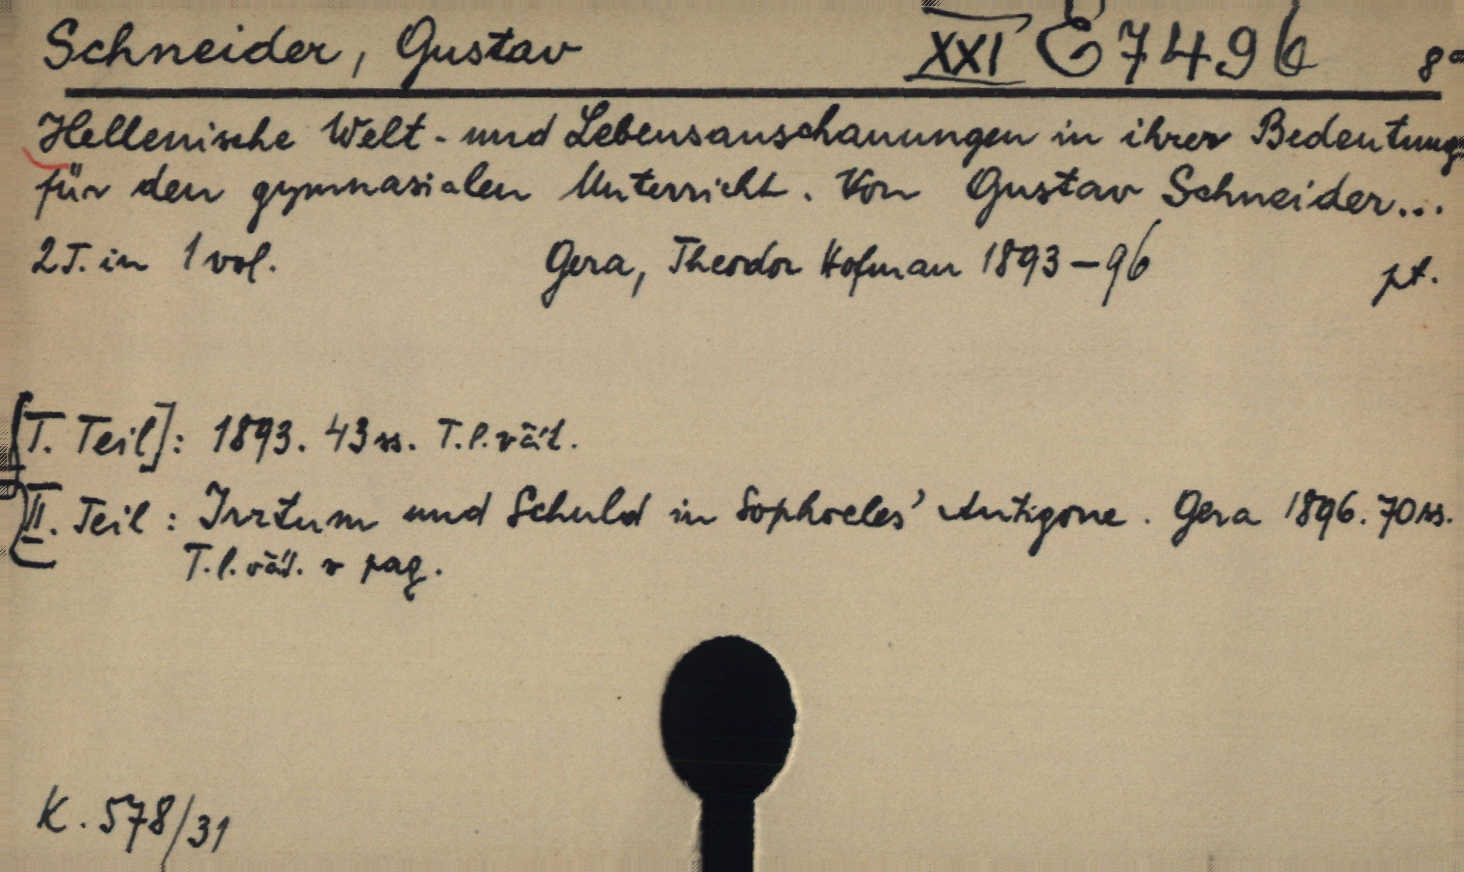 Schneider, Gustav XXI E 7496 8°
Hellenische Welt- und Lebensanschauungen in ihrer Bedeutung
für den gymnasialen Unterricht. Von Gustav Schneider...
2 T. in 1 vol. Gera, Theodor Hofman 1893-96 pt.
[I. Teil]: 1893. 43 ss. T.l. vät.
II. Teil: Irrtum und Schuld in Sophocles' Antigone. Gera 1896. 70 ss.
T.l. vät. v pag.
K. 578/31